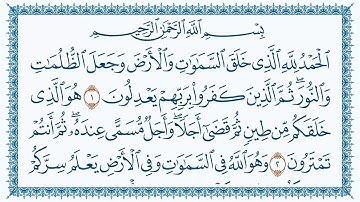 بِسْمِ ٱللَّهِ ٱلرَّحْمَٰنِ ٱلرَّحِيمِ
ٱلْحَمْدُ لِلَّهِ ٱلَّذِى خَلَقَ ٱلسَّمَٰوَٰتِ وَٱلْأَرْضَ وَجَعَلَ ٱلظُّلُمَٰتِ
وَٱلنُّورَ ۖ ثُمَّ ٱلَّذِينَ كَفَرُوا۟ بِرَبِّهِمْ يَعْدِلُونَ ١ هُوَ ٱلَّذِى
خَلَقَكُم مِّن طِينٍ ثُمَّ قَضَىٰٓ أَجَلًا ۖ وَأَجَلٌ مُّسَمًّى عِندَهُۥ ۖ ثُمَّ أَنتُمْ
تَمْتَرُونَ ٢ وَهُوَ ٱللَّهُ فِى ٱلسَّمَٰوَٰتِ وَفِى ٱلْأَرْضِ ۖ يَعْلَمُ سِرَّكُمْ